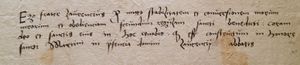 Ego frater Laurencius promitto stabilitatem et conversionem morum
meorum et obedientiam secundum regulam sancti benedicti coram
deo et sanctis eius in hoc cenobio quod est constructum in honore
sancti in presencia domini abbatis